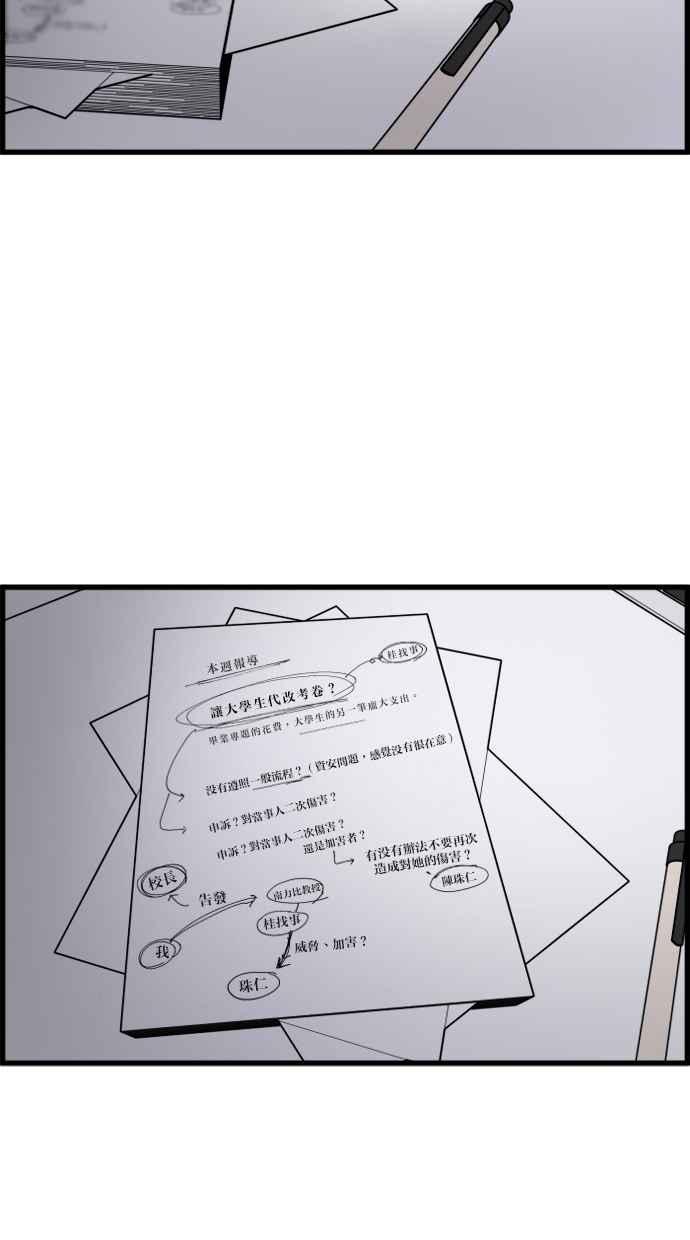 本週報導
桂找事
讓大學生代改考卷？
畢業專題的花費，大學生的另一筆龐大支出。
沒有遵照一般流程？（資安問題，感覺沒有很在意）
申訴？對當事人二次傷害？
申訴？對當事人二次傷害？
還是加害者？
有沒有辦法不要再次
造成對她的傷害？
陳珠仁
校長
告發
南力比教授
桂找事
我
威脅、加害？
珠仁